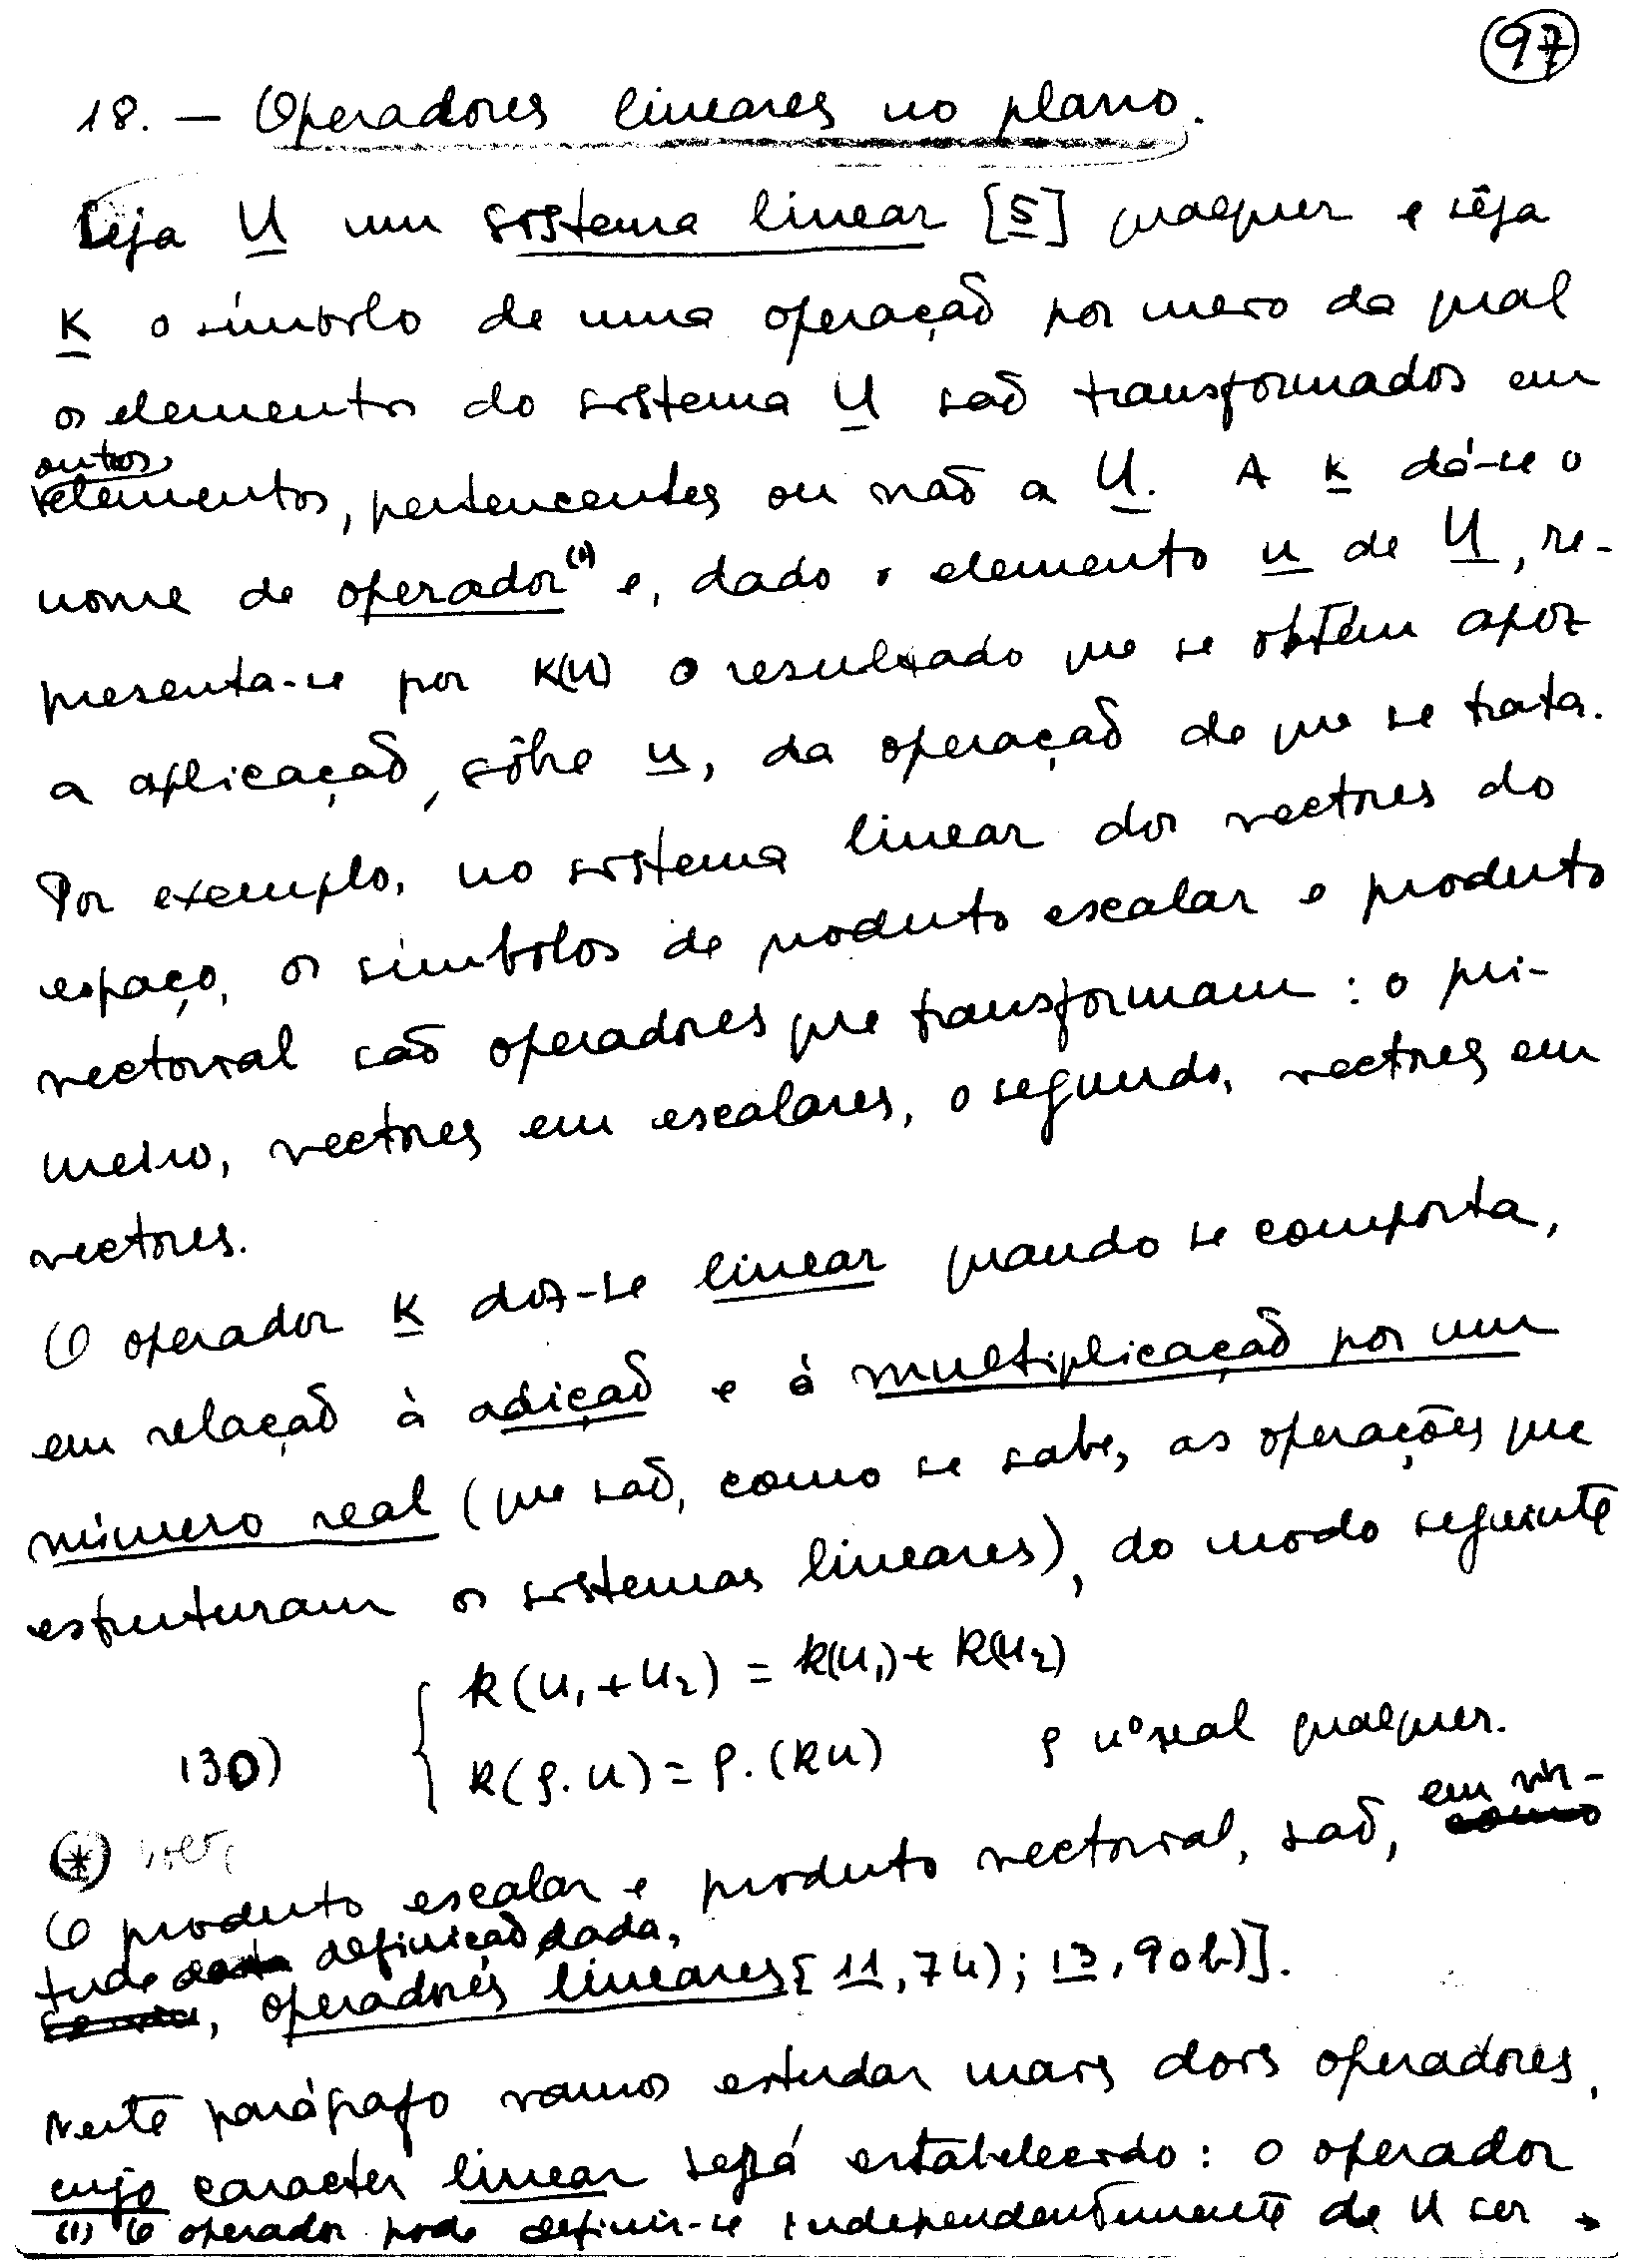 97
18. — Operadores lineares no plano.
Seja U um sistema linear [5] qualquer e sêja
K o símbolo de uma operação por meio da qual
os elementos do sistema U são transformados em
outros
elementos, pertencentes ou não a U. A K dá-se o
nome de operador (1) e, dado o elemento u de U, re-
presenta-se por K(u) o resultado que se obtém apoz
a aplicação, sôbre u, da operação de que se trata.
Por exemplo, no sistema linear dos vectores do
espaço, os símbolos de produto escalar e produto
vectorial são operadores que transformam: o pri-
meiro, vectores em escalares, o segundo, vectores em
vectores.
O operador K diz-se linear quando se comporta,
em relação à adição e à multiplicação por um
número real (que são, como se sabe, as operações que
estruturam os sistemas lineares), do modo seguinte
K(u₁+u₂) = K(u₁)+K(u₂)
130) K(ρ.u) = ρ.(Ku) ρ nº real qualquer.
(*)
em vir-
O produto escalar e produto vectorial, são, como
tude da definição dada,
, operadores lineares [11, 74); 13, 90b)].
Neste parágrafo vamos estudar mais dois operadores,
cujo carácter linear será estabelecido: o operador
(1) O operador pode definir-se independentemente de U ser →